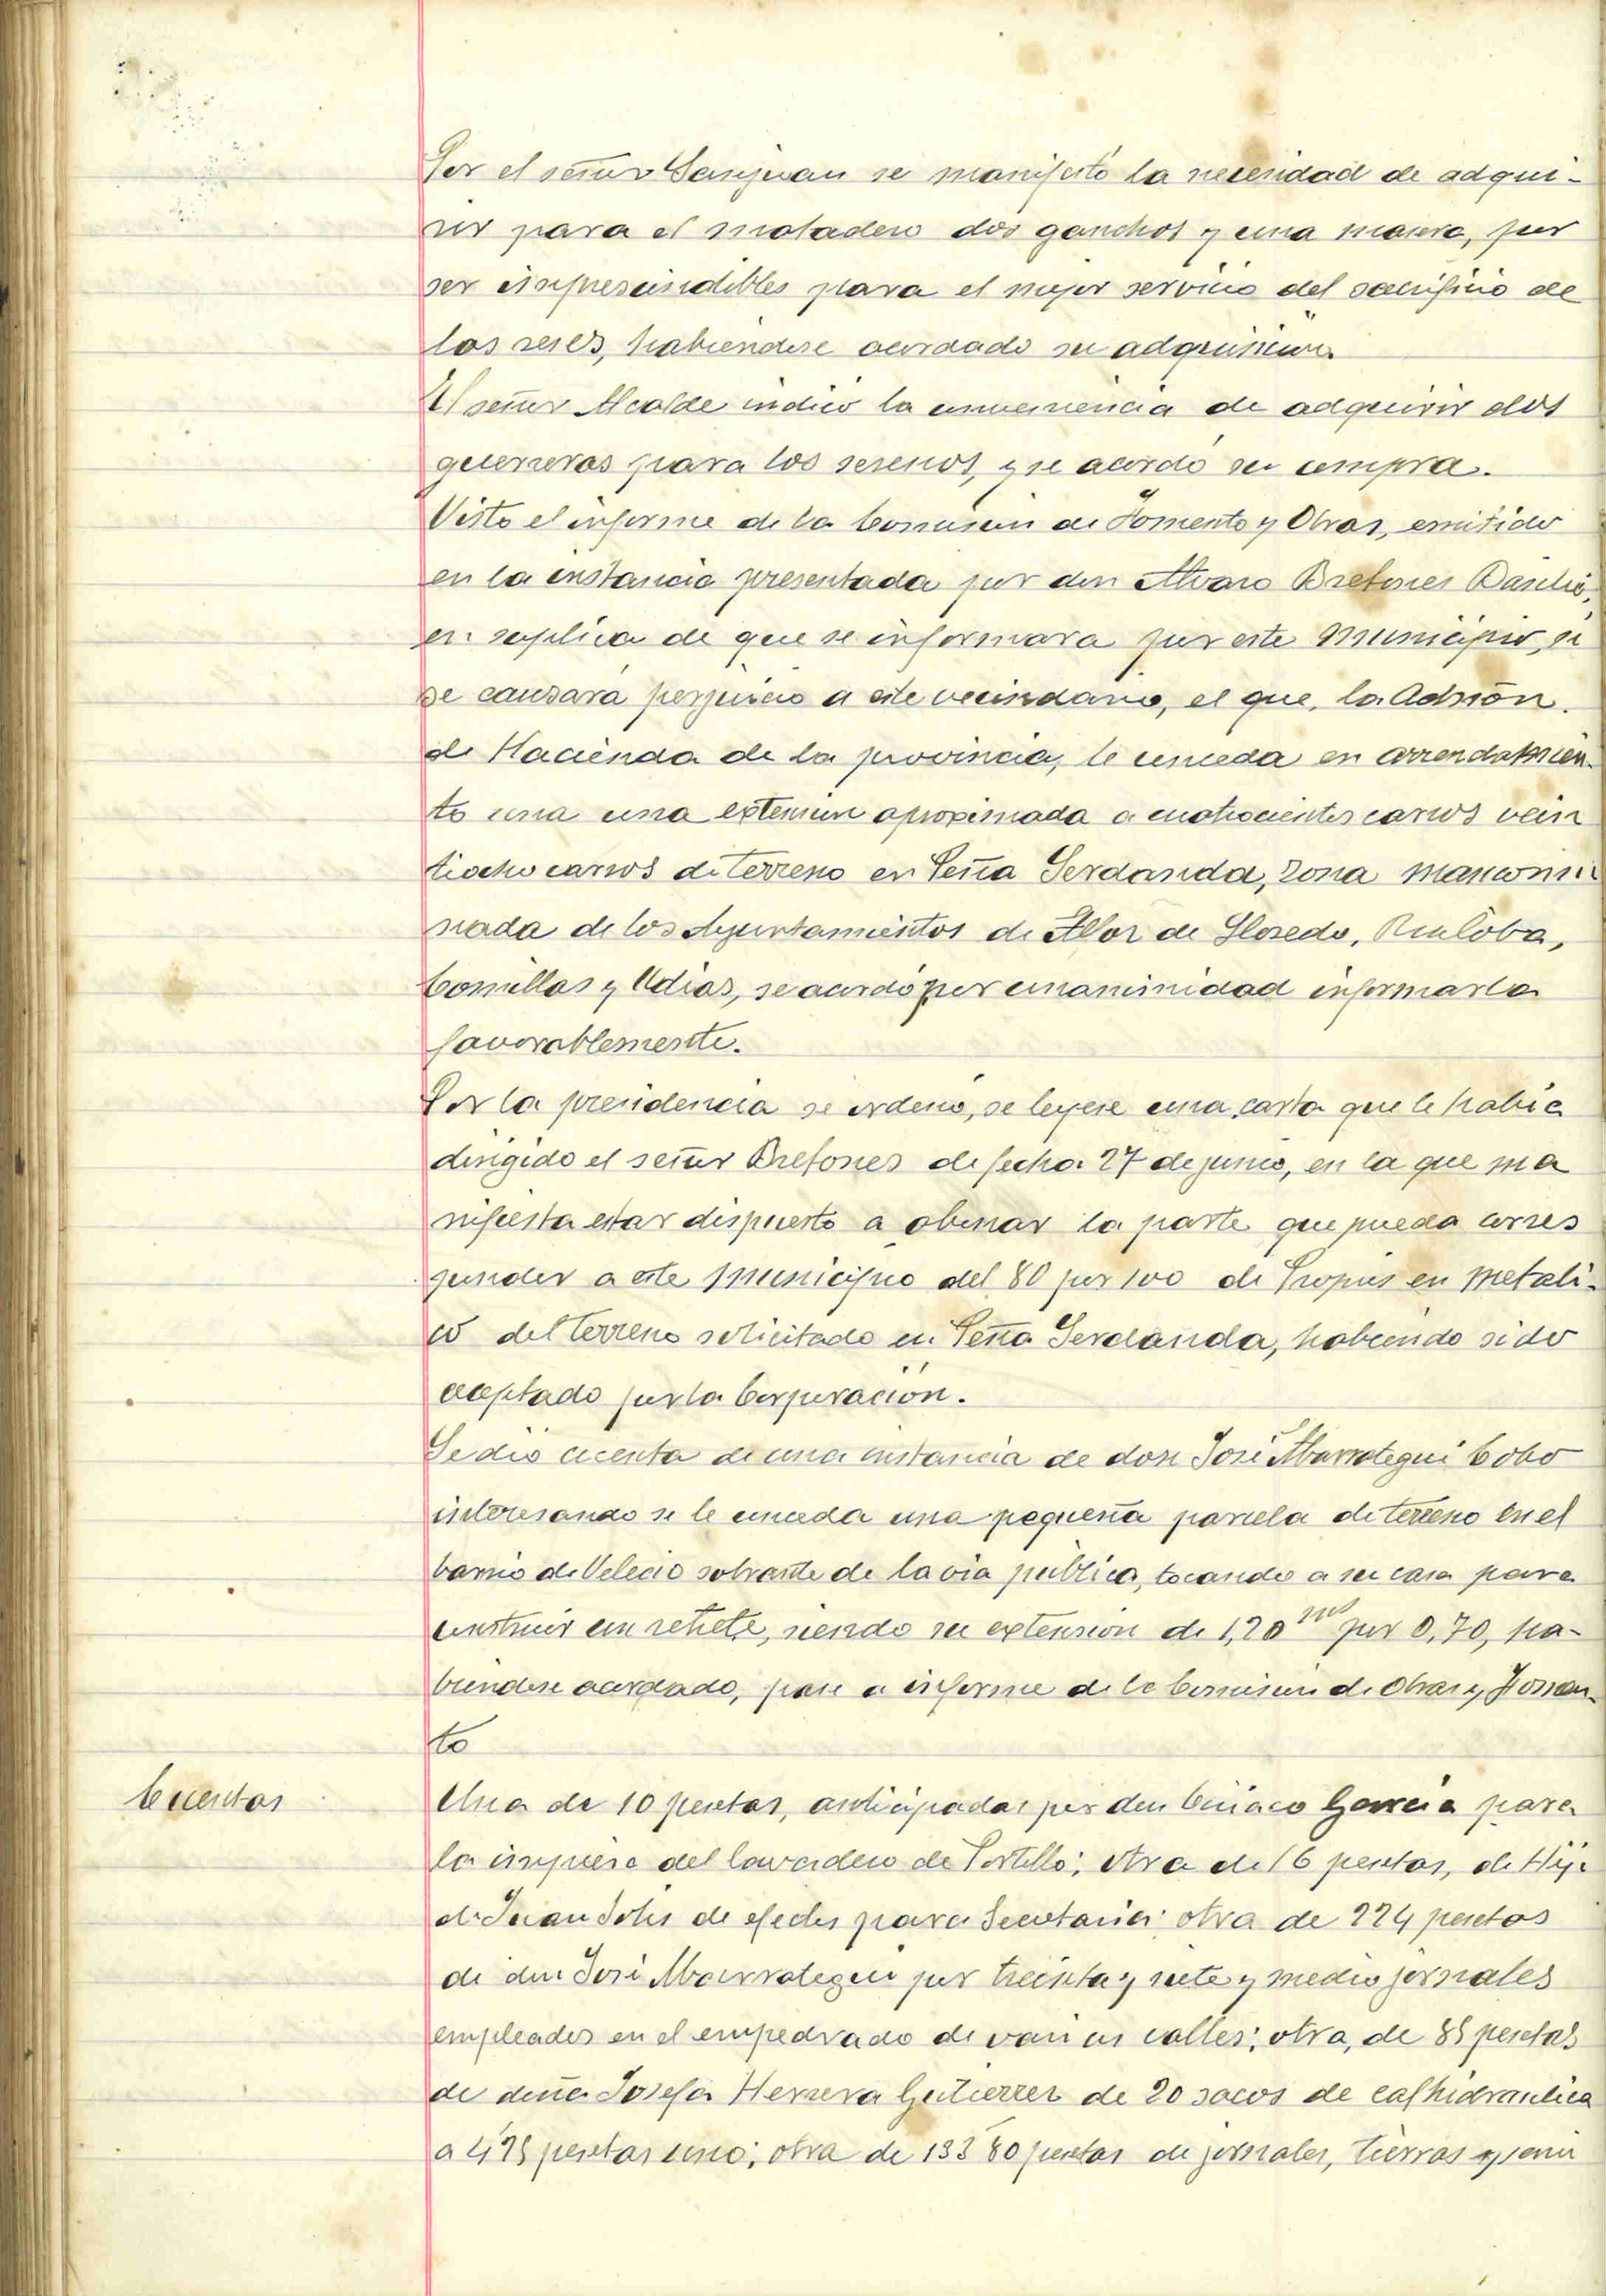 Por el señor Sanjuan se manifestó la necesidad de adqui-
rir para el matadero dos ganchos y una masera, por
ser imprescindibles para el mejor servicio del sacrificio de
las reses, habiendose acordado su adquisicion.
El señor Alcalde indico la conveniencia de adquirir dos
guerreras para los serenos, y se acordó su compra.
Visto el informe de la Comision de Fomento y Obras, emitido
en la instancia presentada por don Alvaro Bretones
en suplica de que se informara por este Municipio, si
se causará perjuicio a este vecindario, el que, la Admōn.
de Hacienda de la provincia, le conceda en arrendamien-
to una una extension aproximada a cuatrocientos carros vein
tiocho carros de terreno en Peña Serdanda, zona mancomu
nada de los Ayuntamientos de Alfoz de Lloredo, Ruiloba,
Comillas y Udias, se acordó por unanimidad informarla
favorablemente.
Por la presidencia se ordenó, se leyese una carta que le habia
dirigido el señor Bretones de fecha 27 de junio, en la que ma
nifiesta estar dispuesto a abonar la parte que pueda corres
ponder a este Municipio del 80 por 100 de Propios en metali-
co del terreno solicitado en Peña Serdanda, habiendo sido
aceptado por la Corporación.
Se dio cuenta de una instancia de don José Marrotegui Cobo
interesando se le conceda una pequeña parcela de terreno en el
barrio de Velecio sobrante de la via publica, tocando a su casa para
construir un retrete, siendo su extension de 1,20 ms por 0,70, ha-
biendose acordado, pase a informe de la Comision de Obras y Fomen-
to
Cuentas
Una de 10 pesetas, anticipadas por don Ciriaco Garcia para
la limpieza del lavadero de Portillo; otra de 16 pesetas, de Hijo
de Juan Solis de efectos para Secretaria; otra de 224 pesetas
de don José Marrotegui por treinta y siete y medio jornales
empleados en el empedrado de varias calles; otra, de 85 pesetas
de doña Josefa Herrera Gutierrez de 20 sacos de cal hidraulica
a 4,25 pesetas uno; otra de 133 80 pesetas de jornales, tierras y